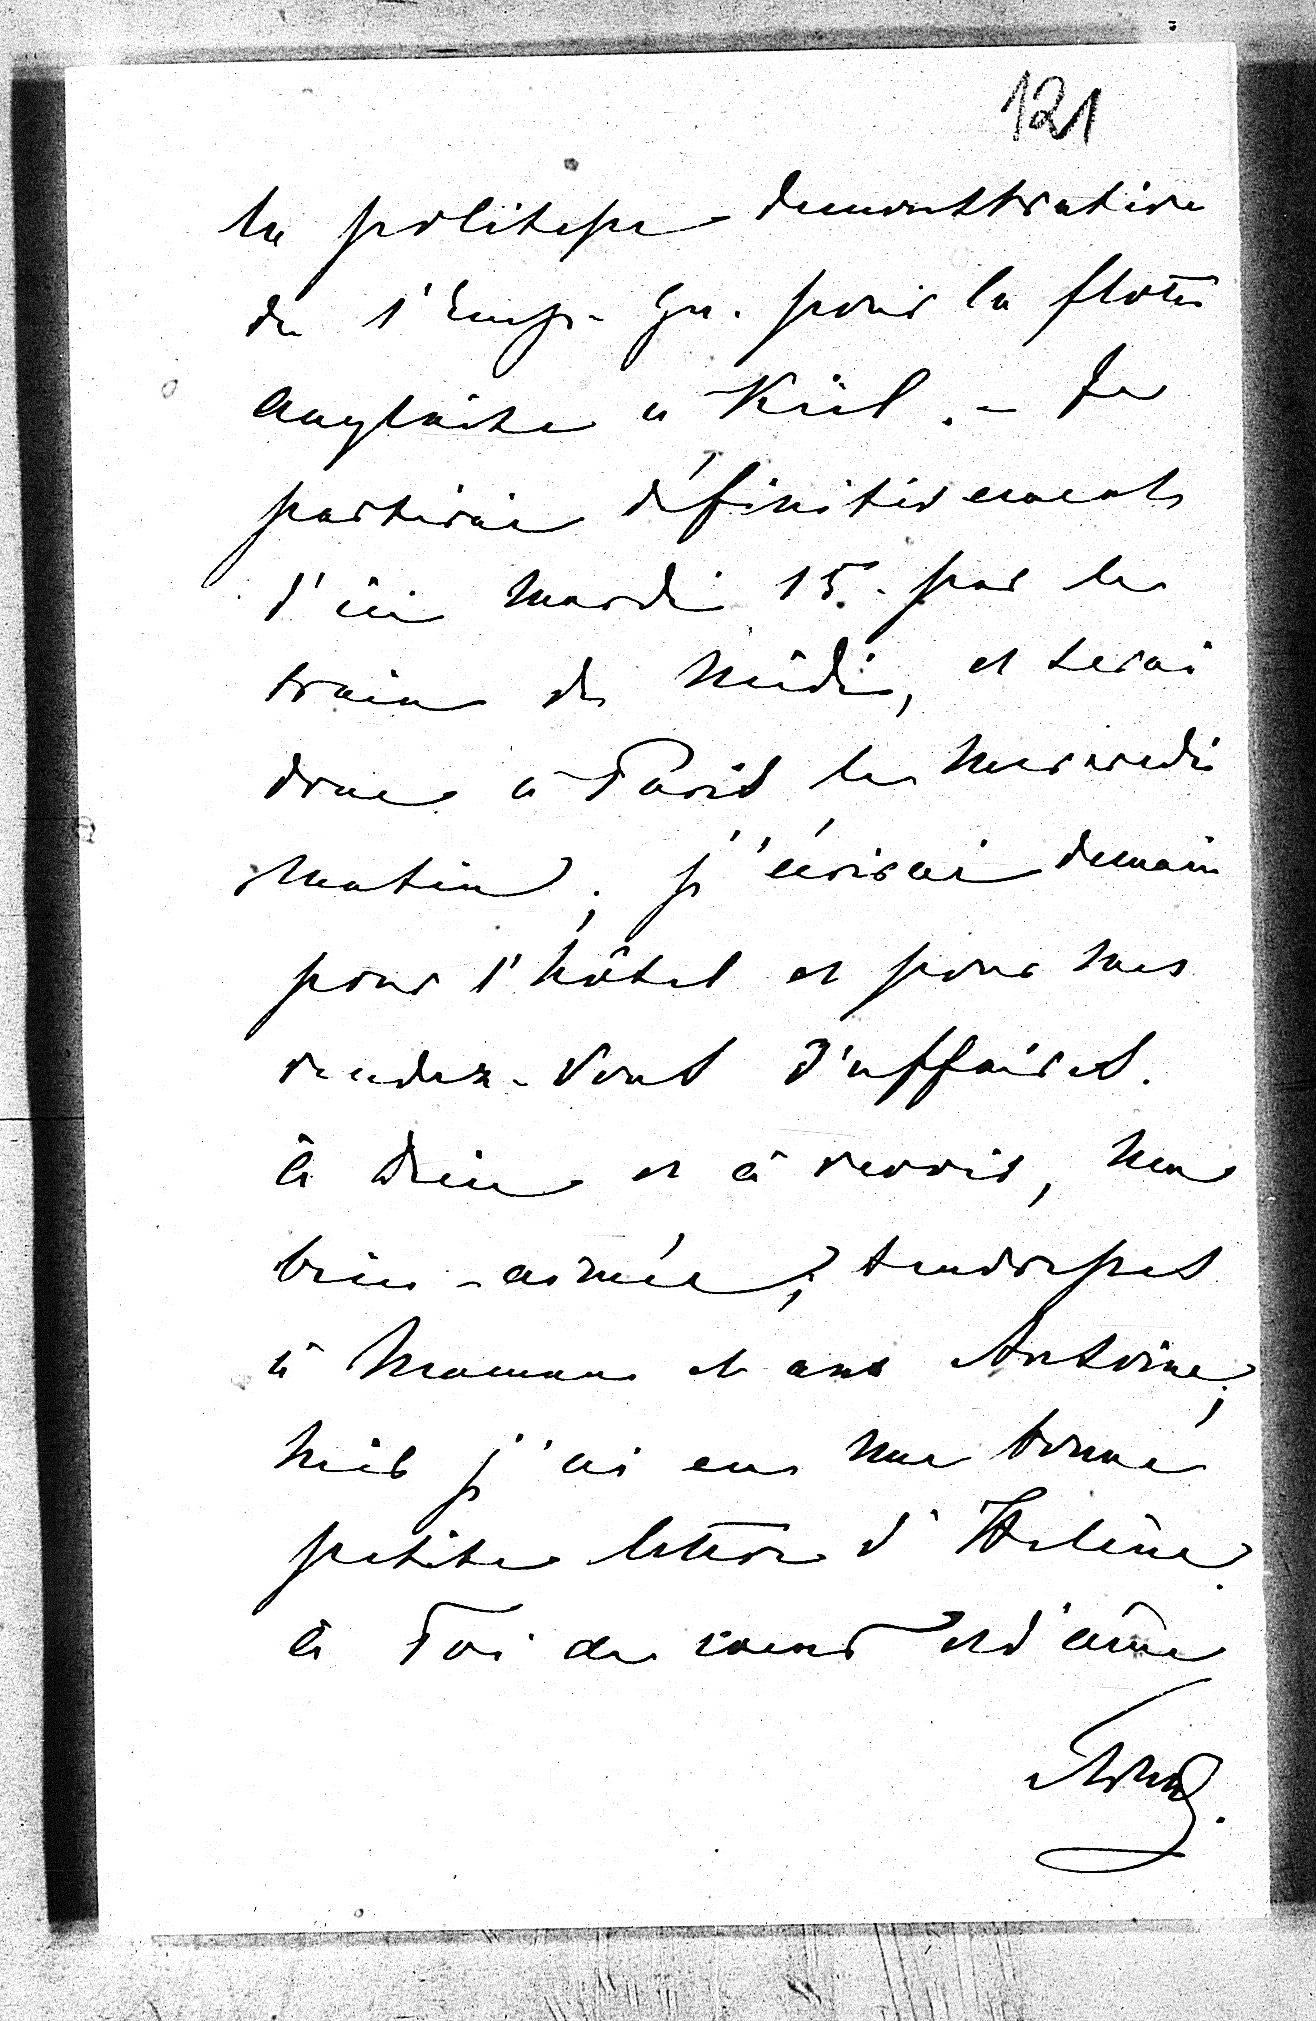 121
la politesse demonstrative
de l'Emp. Gu. pour la flotte
anglaise a Kiel. - Je
partirai définitivement
d'ici mardi 15. par le
train de midi, et serai
donc à Paris le mercredi
matin; j'écrirai demain
pour l'hôtel et pour mes
rendez-vous d'affaires.
à Dieu et à revoir, ma
bien-aimée; tendresses
à Maman et aux Antoine;
hier j'ai eu une bonne
petite lettre d'Hélène.
à Toi de coeur et d'âme